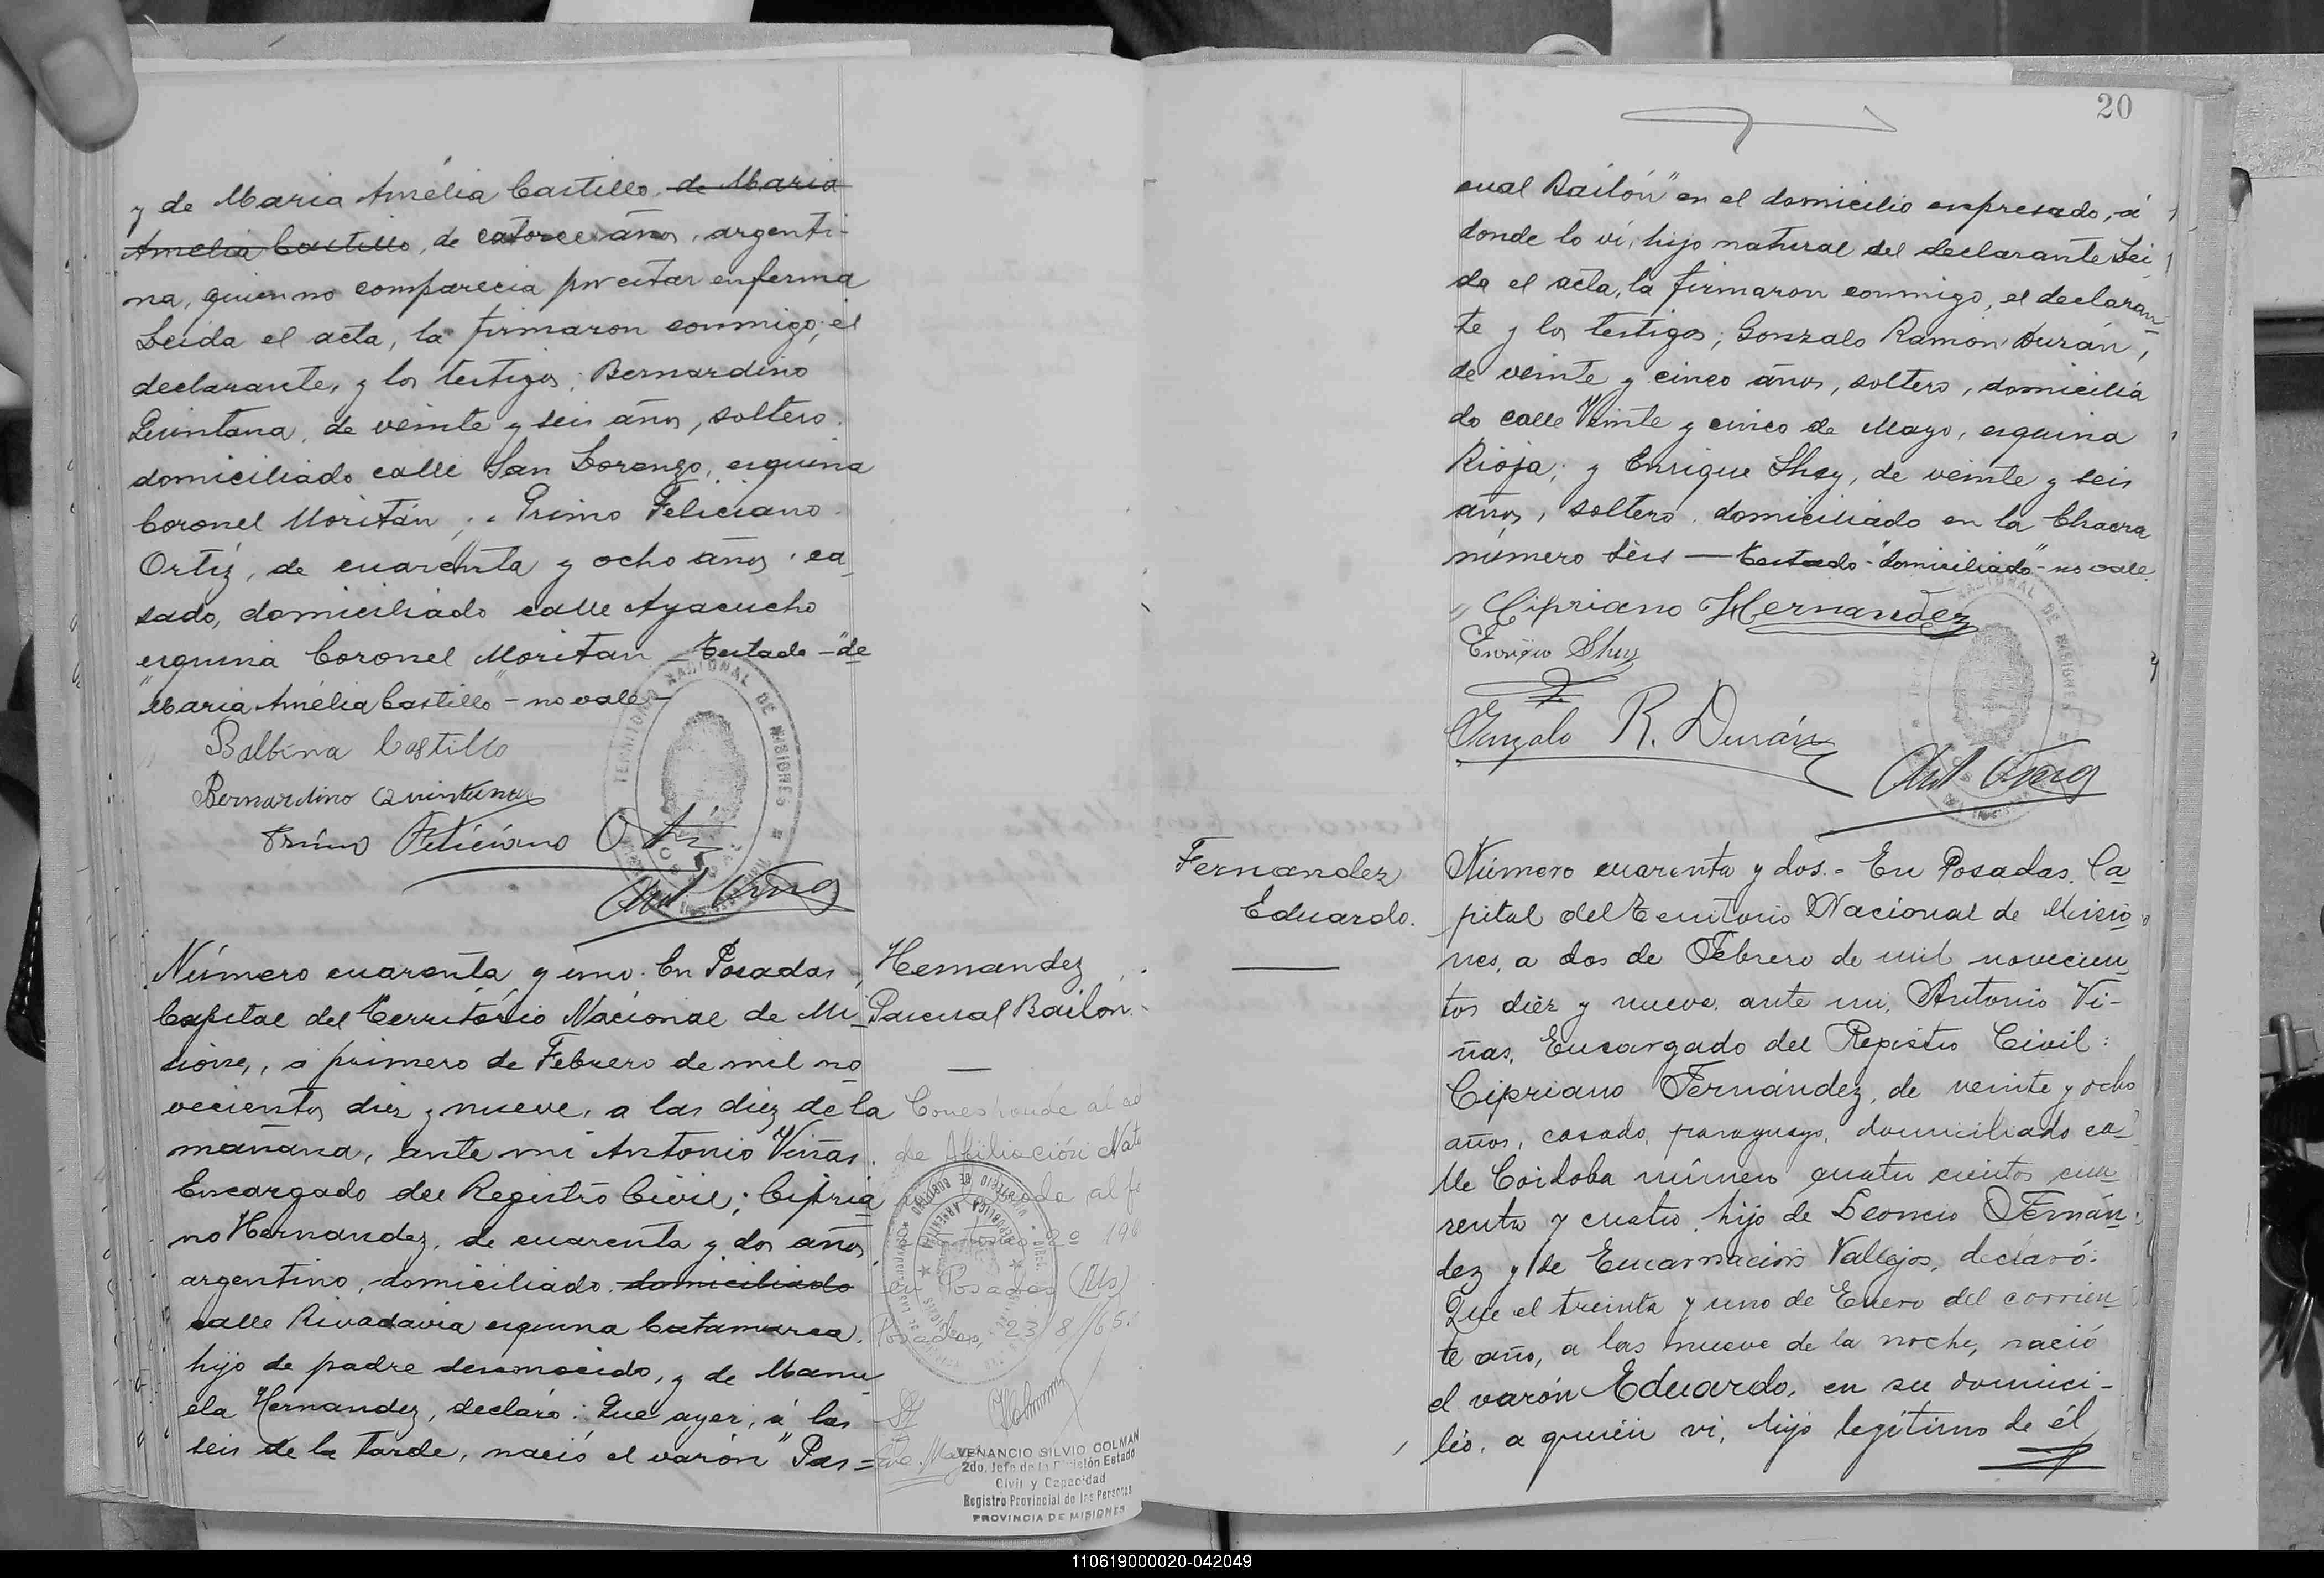 y de Maria Amélia Castillo, de Maria
Amelia Castillo, de catorce años, argenti-
na, quien no comparecia por estar enferma
Leida el acta, la firmaron conmigo, el
declarante, y los testigos; Bernardino
Quintana, de veinte y seis años, soltero.
domiciliado calle San Lorenzo, esquina
Coronel Moritán; Primo Feliciano
Ortíz, de cuarenta y ocho años, ca
sado, domiciliado calle Ayacucho
esquina Coronel Moritan - Testado - "de
"Maria Amélia Castillo" - no vale -
Balbina Castillo
Bernardino Quintana
Primo Feliciano
TERRITORIO NACIONAL DE MISIONES
Número cuarenta y uno. En Posadas,
Capital del Território Nacional de Mi
siones, a primero de Febrero de mil no
vecientos diez y nueve, a las diez de la
mañana, ante mi Antonio Viñas.
Encargado del Registro Civil; Cipria
no Hernandez, de cuarenta y dos años
argentino, domiciliado domiciliado
calle Rivadavia esquina Catamarca,
hijo de padre desconocido, y de Manu
ela Hernandez, declaró: Que ayer, á las
seis de la tarde, nació el varón "Pas=
Hernandez
Pascual Bailón.
Corresponde al
de Afiliación
en Posadas (Ms)
Posadas, 23/8/65.
VENANCIO SILVIO COLMAN
2do. Jefe de la División Estado
Civil y Capacidad
Registro Provincial de las Personas
PROVINCIA DE MISIONES
20
cual Bailón" en el domicilio expresado, á
donde lo ví, hijo natural del declarante Lei
da el acta, la firmaron conmigo, el declaran
te y los testigos; Gonzalo Ramón Durán,
de veinte y cinco años, soltero, domicilia
do calle Veinte y cinco de Mayo, esquina
Rioja; y Enrique Shey, de veinte y seis
años, soltero, domiciliado en la Chacra
número seis — Testado - "domiciliado" - no vale.
Cipriano Hernandez
Gonzalo R. Durán
Fernandez
Eduardo.
Número cuarenta y dos. - En Posadas, Ca
pital del Territorio Nacional de Misio
nes, a dos de Febrero de mil novecien
tos diez y nueve, ante mi, Antonio Vi-
ñas, Encargado del Registro Civil:
Cipriano Fernández, de veinte y ocho
años, casado, paraguayo, domiciliado ca
lle Córdoba número cuatro cientos cua
renta y cuatro, hijo de Leoncio Fernán
dez y de Encarnación Vallejos, declaró:
Que el treinta y uno de Enero del corrien
te año, a las nueve de la noche, nació
el varón Eduardo, en su domici-
lio, a quien vi, hijo legítimo de él
110619000020-042049